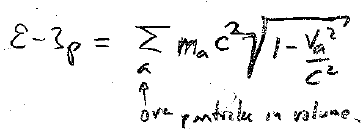 ε-3p = Σ_a m_a c² √(1 - v_a²/c²)
over particles in volume.